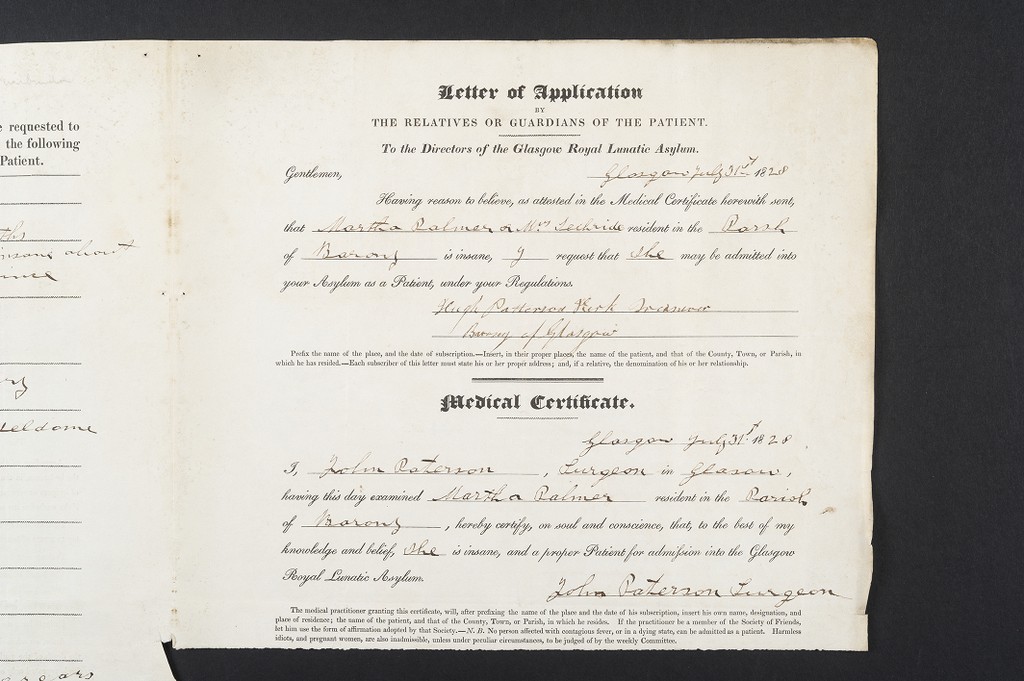 e requested to
the following
Patient.
ths
insane about
ry
seldome
Letter of Application
BY
THE RELATIVES OR GUARDIANS OF THE PATIENT.
To the Directors of the Glasgow Royal Lunatic Asylum.
Glasgow July 31st 1828
Gentlemen,
Having reason to believe, as attested in the Medical Certificate herewith sent,
that Martha Palmer or Mrs resident in the Parsh
of Barony is insane, I request that She may be admitted into
your Asylum as a Patient, under your Regulations.
Hugh Patterson Kirk Treasurer
Barony of Glasgow
Prefix the name of the place, and the date of subscription.—Insert, in their proper places, the name of the patient, and that of the County, Town, or Parish, in
which he has resided.—Each subscriber of this letter must state his or her proper address; and, if a relative, the denomination of his or her relationship.
Medical Certificate.
Glasgow July 31st 1828
I, John Paterson, Surgeon in Glasow,
having this day examined Martha Palmer resident in the Parish
of Barony, hereby certify, on soul and conscience, that, to the best of my
knowledge and belief, She is insane, and a proper Patient for admission into the Glasgow
Royal Lunatic Asylum.
John Paterson Surgeon
The medical practitioner granting this certificate, will, after prefixing the name of the place and the date of his subscription, insert his own name, designation, and
place of residence; the name of the patient, and that of the County, Town, or Parish, in which he resides. If the practitioner be a member of the Society of Friends,
let him use the form of affirmation adopted by that Society.—N. B. No person affected with contagious fever, or in a dying state, can be admitted as a patient. Harmless
idiots, and pregnant women, are also inadmissible, unless under peculiar circumstances, to be judged of by the weekly Committee.